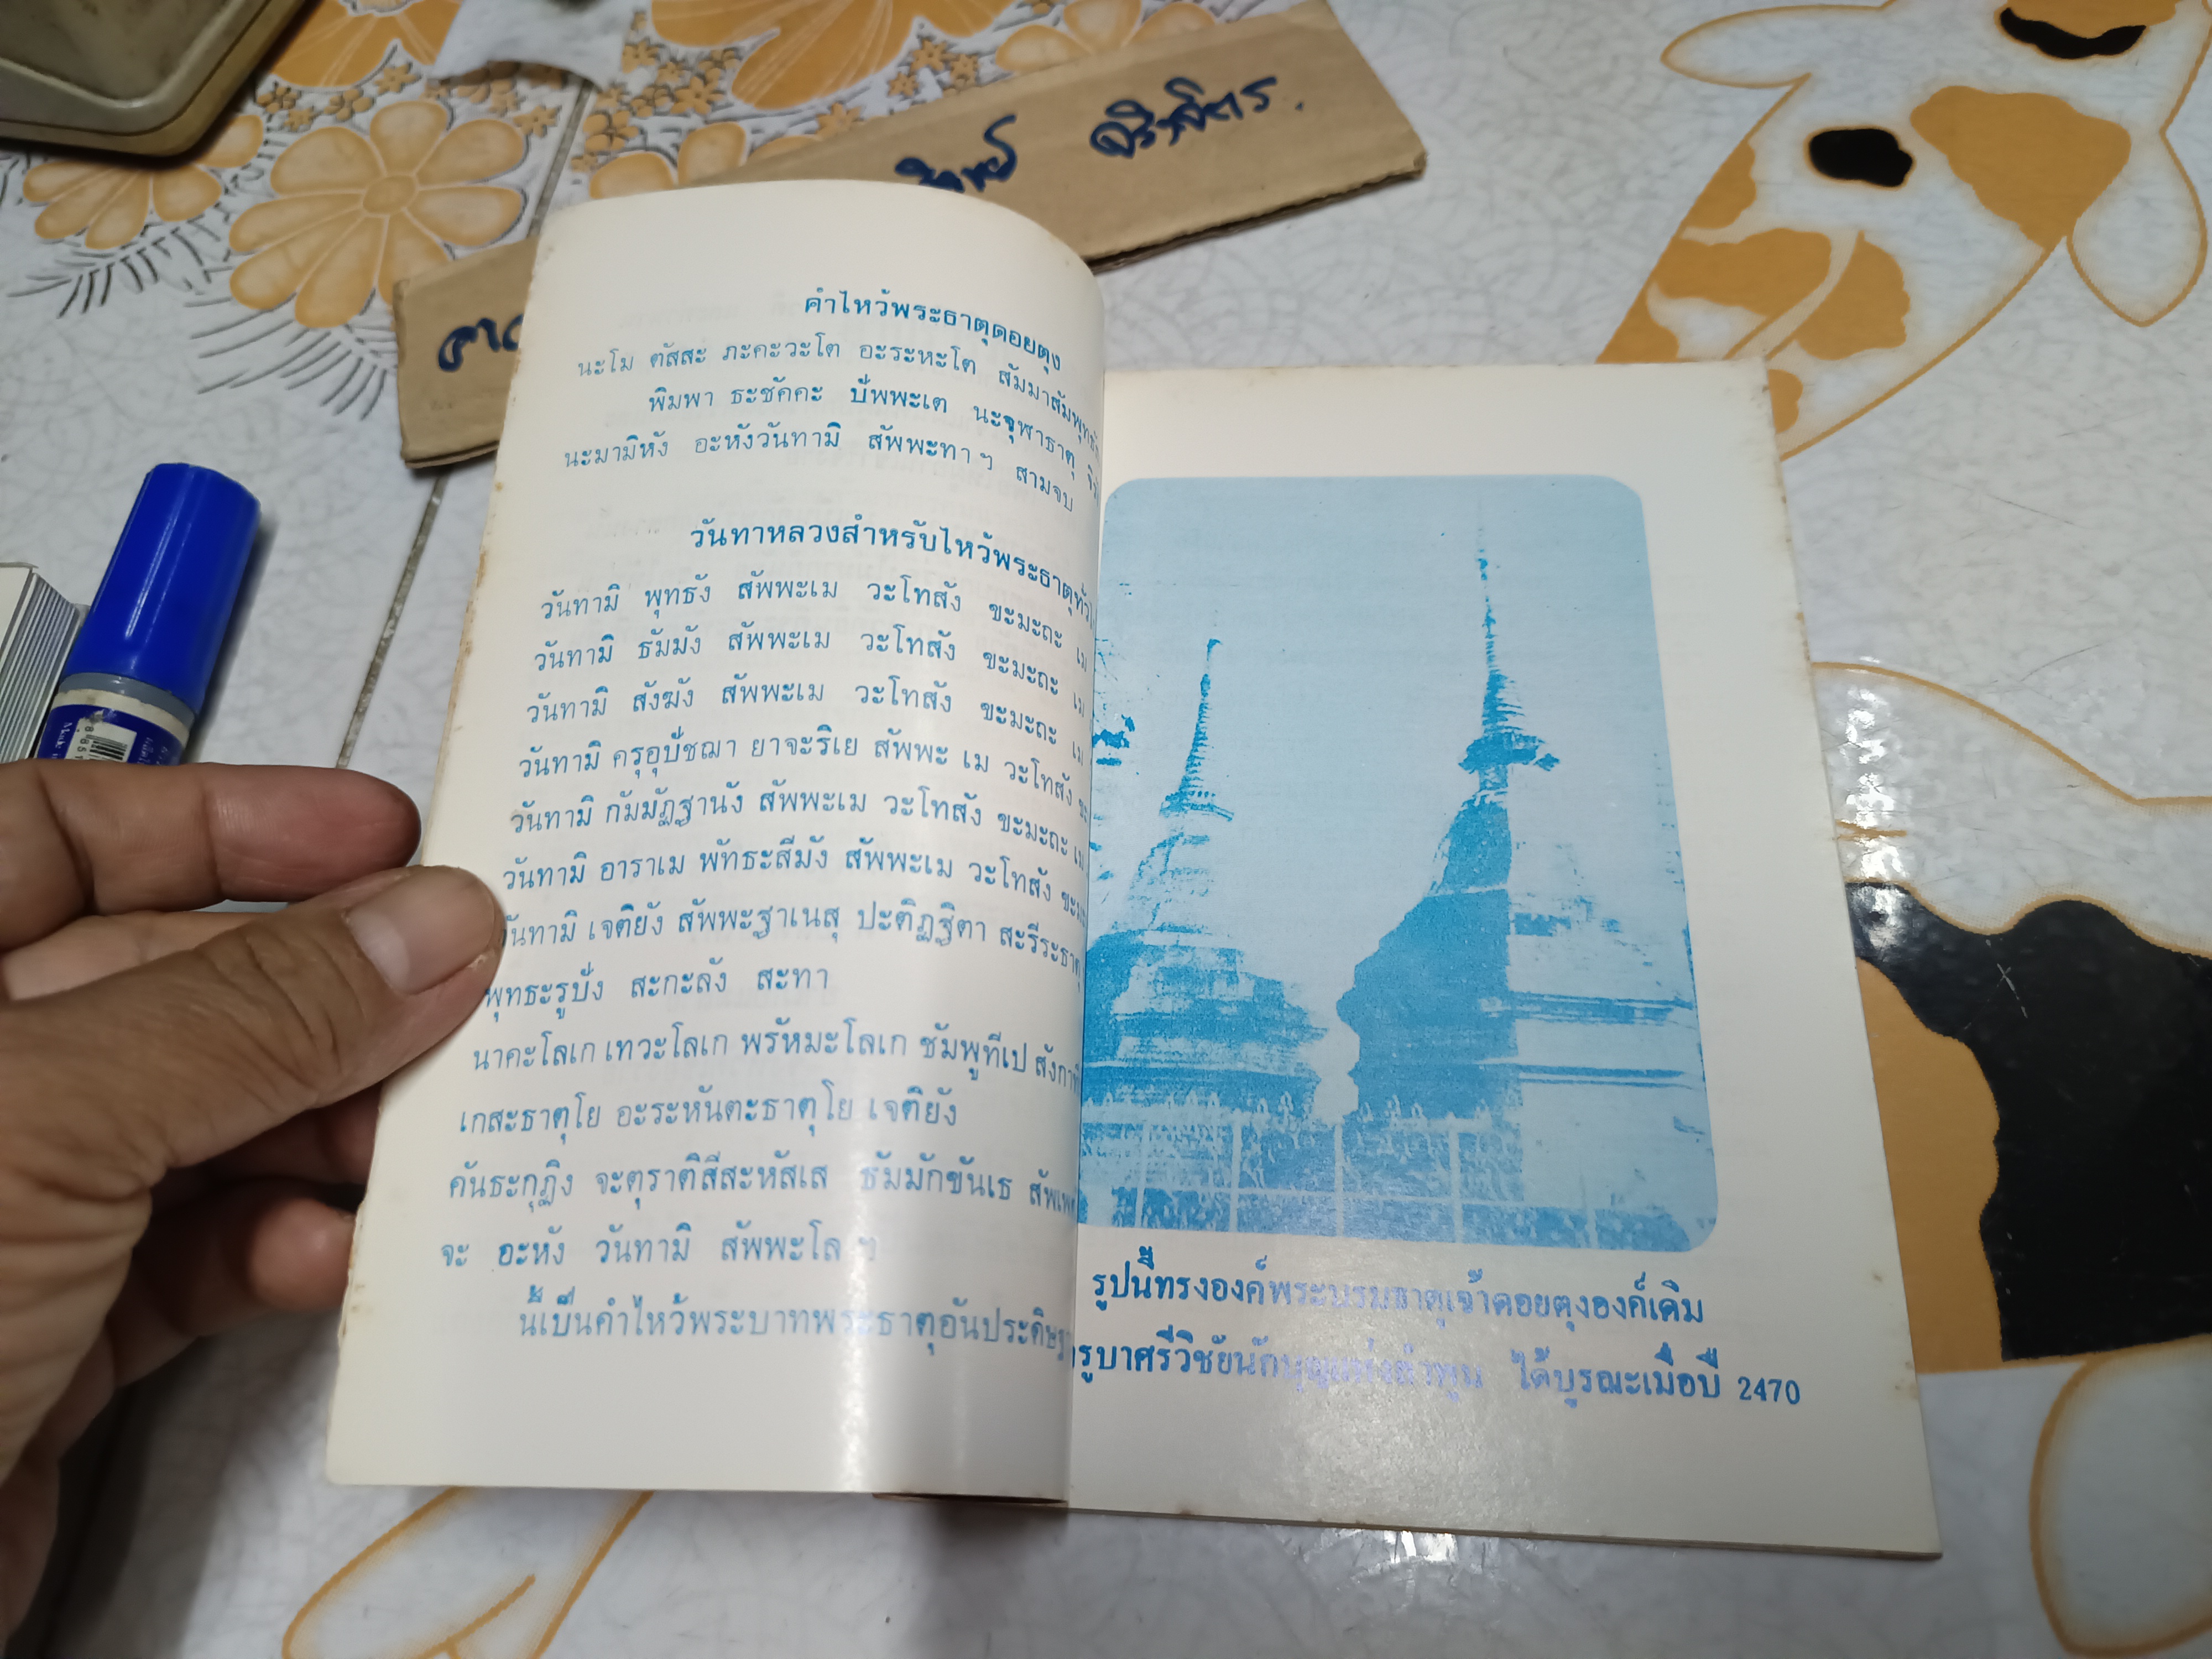 จิรจิตร.
คำไหว้พระธาตุดอยตุง
นะโม ตัสสะ ภะคะวะโต อะระหะโต สัมมาสัมพุทธัส
พิมพา ธะชัคคะ ปัพพะเต นะจุฬาธาตุ
นะมามิหัง อะหังวันทามิ สัพพะทา ฯ สามจบ
วันทาหลวงสำหรับไหว้พระธาตุทั่วไ
วันทามิ พุทธัง สัพพะเม วะโทสัง ขะมะถะ เม
วันทามิ ธัมมัง สัพพะเม วะโทสัง ขะมะถะ เม
วันทามิ สังฆัง สัพพะเม วะโทสัง ขะมะถะ เม
วันทามิ ครุอุปัชฌา ยาจะริเย สัพพะ เม วะโทสัง ขะ
วันทามิ กัมมัฏฐานัง สัพพะเม วะโทสัง ขะมะถะ เม
วันทามิ อาราเม พัทธะสีมัง สัพพะเม วะโทสัง ขะมะ
วันทามิ เจติยัง สัพพะฐาเนสุ ปะติฏฐิตา สะรีระธาตุ
พุทธะรูปัง สะกะลัง สะทา
นาคะโลเก เทวะโลเก พรัหมะโลเก ชัมพูทีเป สังกา
เกสะธาตุโย อะระหันตะธาตุโย เจติยัง
คันธะกุฎิง จะตุราติสีสะหัสเส ธัมมักขันเธ สัพเพ
จะ อะหัง วันทามิ สัพพะโส ฯ
นี้เป็นคำไหว้พระบาทพระธาตุอันประดิษฐ
รูปนี้ทรงองค์พระบรมธาตุเจ้าดอยตุงองค์เดิม
รูบาศรีวิชัยนักบุญแห่งลำพูน ได้บูรณะเมื่อปี 2470